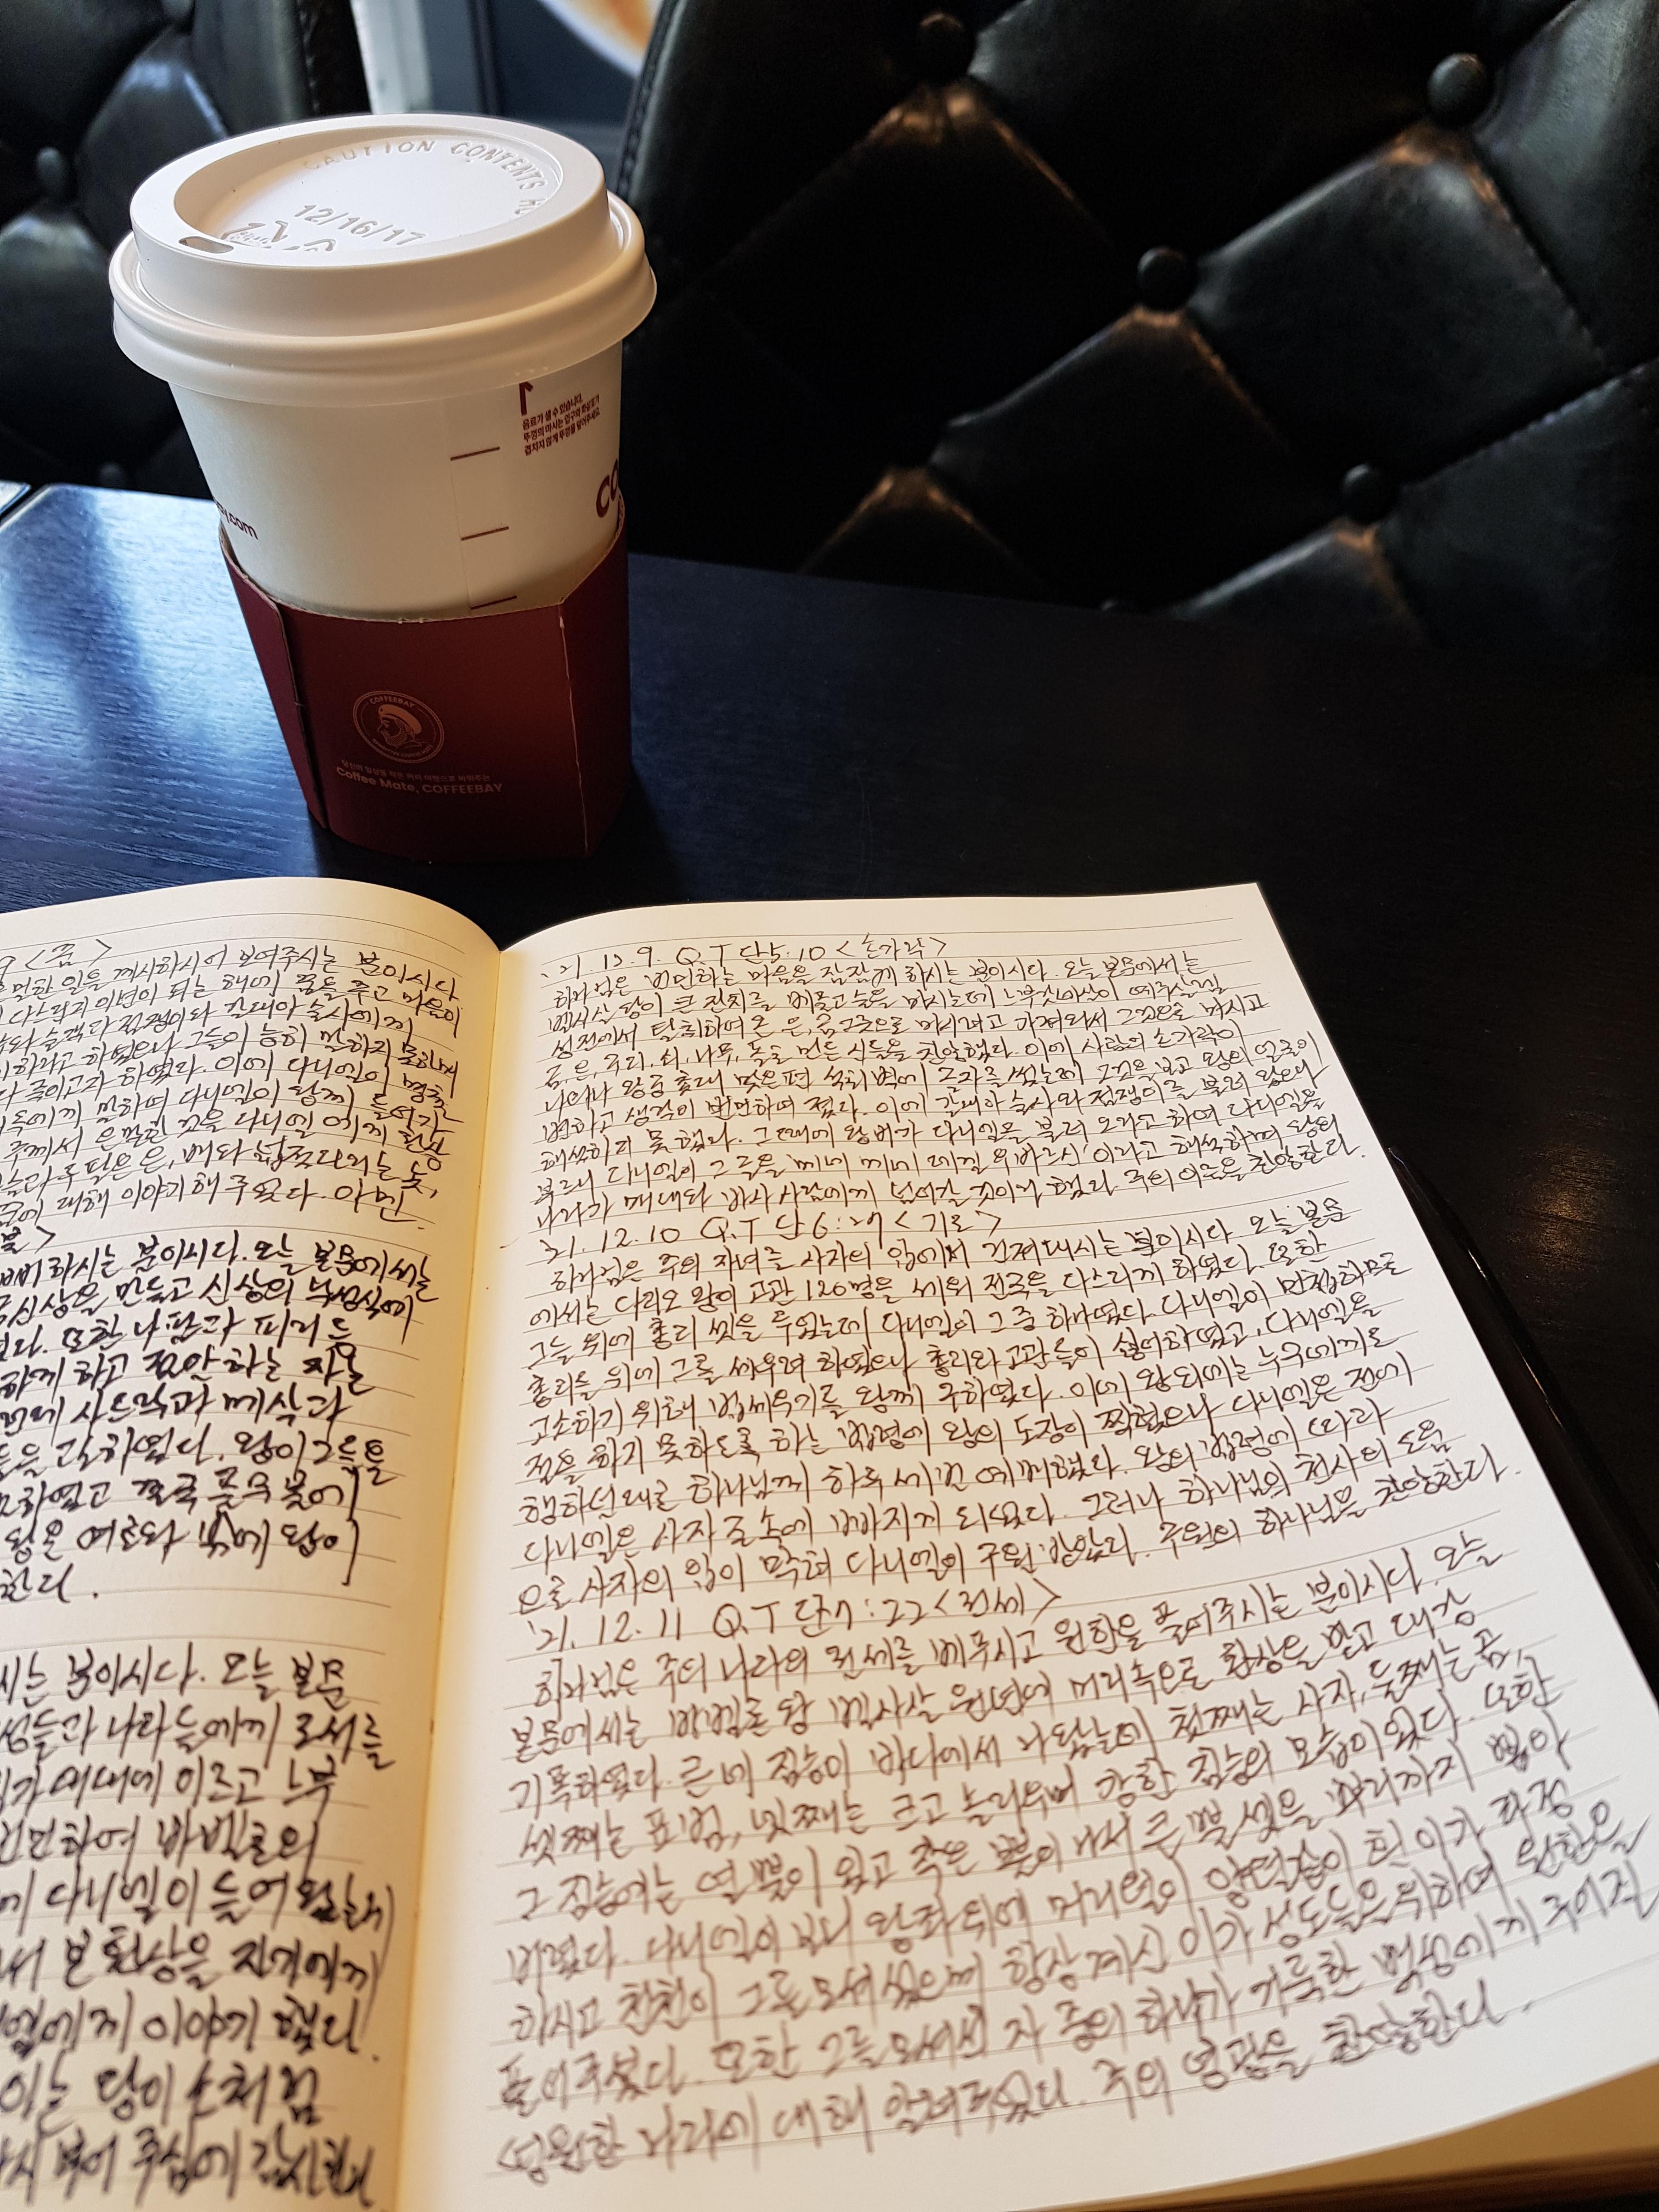 CAUTION CONTENTS
12/16/17
음료가 샐 수 있습니다.
뚜껑의 마시는 입구와 화살표가
겹치지 않게 뚜껑을 닫아주세요.
CO
y.com
COFFEEBAY
Coffee Mate, COFFEEBAY
<꿈>
은밀한 일을 계시하시어 보여주시는 분이시다
다스린지 이년이 되는 해에 꿈을 주고 마음이
술객과 점쟁이와 갈대아 술사에게
하라고 하였으나 그들이 능히 말하지 못하매
다 죽이고자 하였다. 이에 다니엘이
에게 말하며 다니엘이 왕께 들어가
주께서 은밀한 것을 다니엘에게 환상
은, 배와 넓적다리는 놋,
꿈에 대해 이야기해 주었다. 아멘.
하시는 분이시다. 오늘 본문에서는
금신상을 만들고 신상의 낙성식에
또한 나팔과 피리 등
하게 하고 절 안하는 자를
사드락과 메삭과
들을 고하였다. 왕이 그들을
왕은 여호와 밖에 왕이
한다.
시는 분이시다. 오늘 본문
백성들과 나라들에게 조서를
이르고 느부
번민하여 바벨론의
에 다니엘이 들어왔는데
본 환상을 자기에게
다니엘에게 이야기 했다.
소처럼
주심에 감사한다
'21. 12. 9. Q.T 단5:10 <손가락>
하나님은 번민하는 마음을 잠잠케 하시는 분이시다. 오늘 본문에서는
벨사살 왕이 큰 잔치를 베풀고 술을 마시는데 느부갓네살이 예루살렘
성전에서 탈취하여 온 은,금 그릇으로 마시려고 가져와서 그것으로 마시고
금,은,구리,쇠,나무,돌로 만든 신들을 찬양했다. 이에 사람의 손가락이
나타나 왕궁 촛대 맞은편 석회벽에 글자를 썼는데 그것을 보고 왕의 얼굴이
변하고 생각이 번민하여 졌다. 이에 갈대아 술사와 점쟁이를 불러 왔으나
해석하지 못했다. 그 때에 왕비가 다니엘을 불러 오라고 하여 다니엘을
부르니 다니엘이 그 글을 '메네 메네 데겔 우바르신' 이라고 해석하며 왕의
나라가 메대와 바사 사람에게 넘어갈 것이라 했다. 주의 이름을 찬양한다.
'21. 12. 10 Q.T 단6:27 <기도>
하나님은 주의 자녀를 사자의 입에서 건져내시는 분이시다. 오늘 본문
에서는 다리오 왕이 고관 120명을 세워 전국을 다스리게 하였다. 또한
그들 위에 총리 셋을 두었는데 다니엘이 그 중 하나였다. 다니엘이 민첩하므로
총리들 위에 그를 세우려 하였으나 총리와 고관들이 싫어하였고, 다니엘을
고소하기 위해 법 세우기를 왕께 구하였다. 이에 왕 외에는 누구에게도
절을 하지 못하도록 하는 법령에 왕의 도장이 찍혔으나 다니엘은 전에
행하던대로 하나님께 하루 세번 예배했다. 왕의 법령에 따라
다니엘은 사자굴 속에 빠지게 되었다. 그러나 하나님의 천사의 도움
으로 사자의 입이 막혀 다니엘이 구원 받았다. 구원의 하나님을 찬양한다.
'21. 12. 11 Q.T 단7:22 <권세>
하나님은 주의 나라의 권세를 베푸시고 원한을 풀어주시는 분이시다. 오늘
본문에서는 바벨론 왕 벨사살 원년에 머리속으로 환상을 받고 대강
기록하였다. 큰 네 짐승이 바다에서 나왔는데 첫째는 사자, 둘째는 곰,
셋째는 표범, 넷째는 크고 놀라우며 강한 짐승의 모습이었다. 또한
그 짐승에는 열 뿔이 있고 작은 뿔이 나서 큰 뿔 셋을 뿌리까지 뽑아
버렸다. 다니엘이 보니 왕좌 위에 머리털이 양털같이 흰 이가 좌정
하시고 천천이 그를 모셔 섰으며 항상 계신 이가 성도들을 위하여 원한을
풀어주셨다. 또한 그를 모셔선 자 중의 하나가 거룩한 백성에게 주어질
영원한 나라에 대해 알려주었다. 주의 영광을 찬양한다.